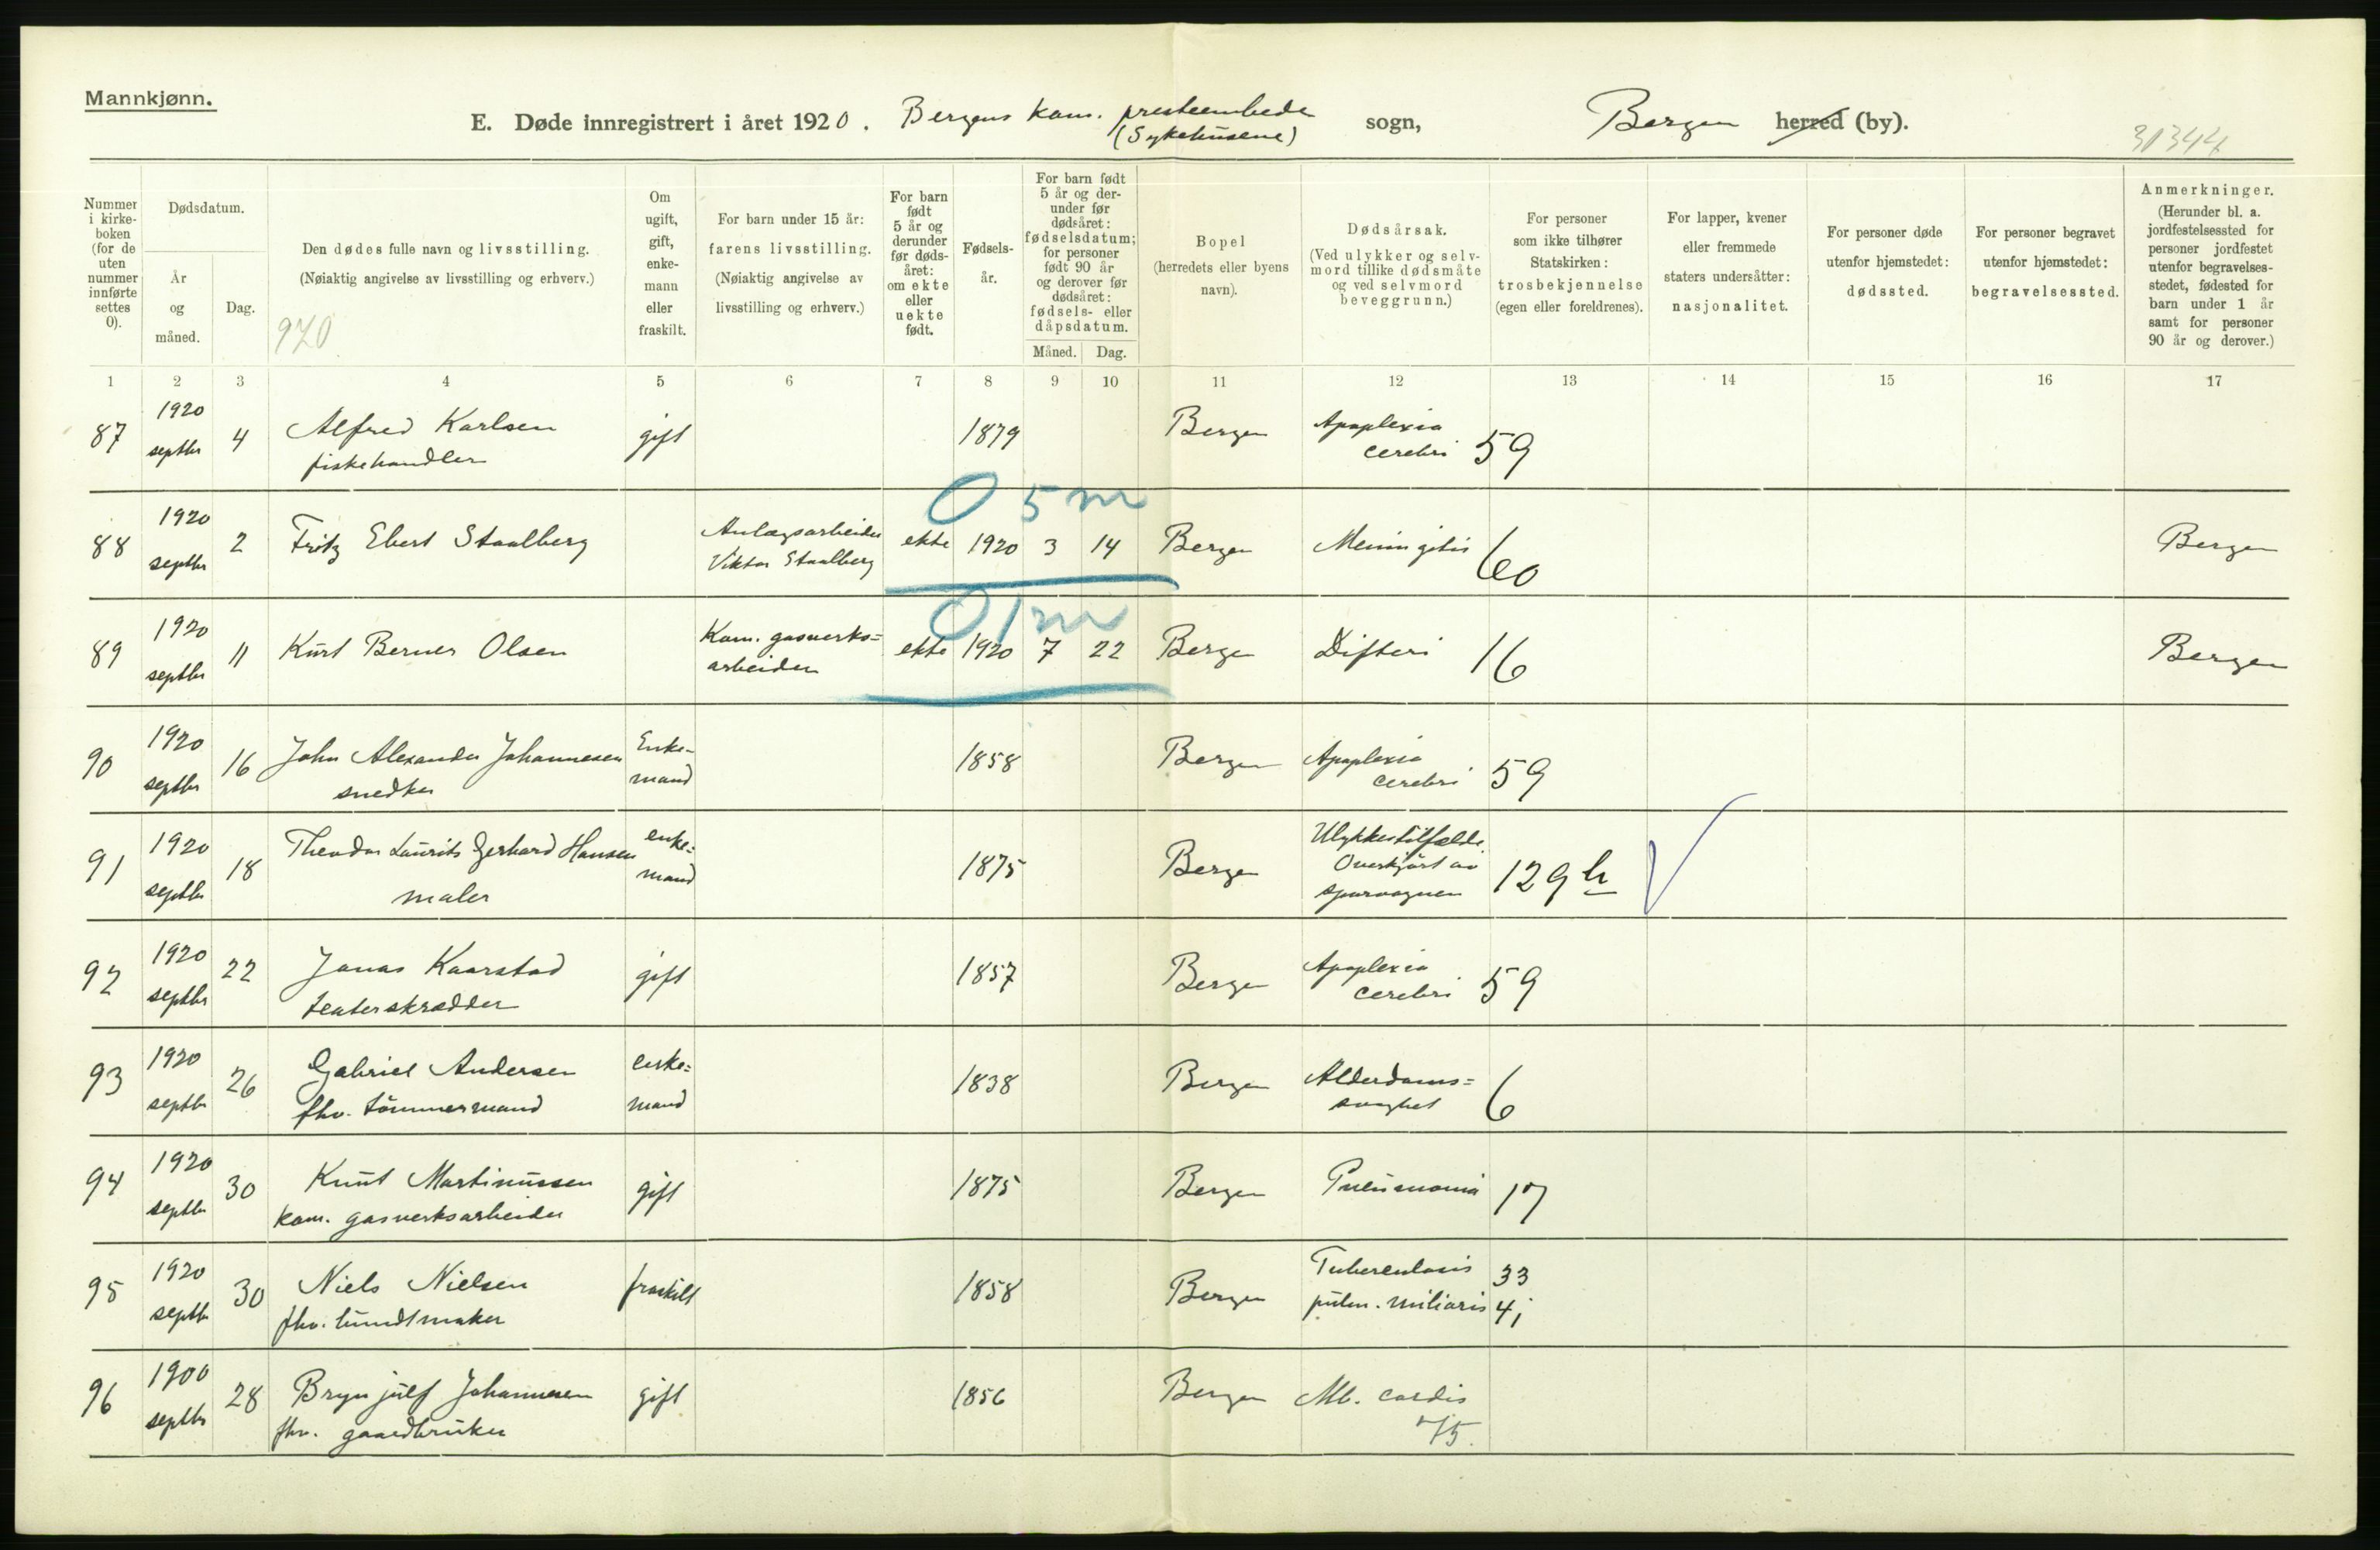 Mannkjønn.
E. Døde innregistrert i året 1920. Bergens kom. presteembede (Sykehusene) sogn, Bergen herred (by).
31344
Nummer i kirkeboken (for de uten nummer innførte settes 0).
Dødsdatum.
År og måned.
Dag.
Den dødes fulle navn og livsstilling.
(Nøiaktig angivelse av livsstilling og erhverv.)
920
Om ugift, gift, enkemann eller fraskilt.
For barn under 15 år: farens livsstilling.
(Nøiaktig angivelse av livsstilling og erhverv.)
For barn født 5 år og derunder før dødsåret: om ekte eller uekte født.
Fødselsår.
For barn født 5 år og derunder før dødsåret: fødselsdatum; for personer født 90 år og derover før dødsåret: fødsels- eller dåpsdatum.
Måned. Dag.
Bopel (herredets eller byens navn).
Dødsårsak.
(Ved ulykker og selvmord tillike dødsmåte og ved selvmord beveggrunn.)
For personer som ikke tilhører Statskirken: trosbekjennelse (egen eller foreldrenes).
For lapper, kvener eller fremmede staters undersåtter: nasjonalitet.
For personer døde utenfor hjemstedet: dødssted.
For personer begravet utenfor hjemstedet: begravelsessted.
Anmerkninger.
(Herunder bl. a. jordfestelsessted for personer jordfestet utenfor begravelsesstedet, fødested for barn under 1 år samt for personer 90 år og derover.)
1 2 3 4 5 6 7 8 9 10 11 12 13 14 15 16 17
87 1920 septbr 4 Alfred Karlsen fiskehandler gift 1879 Bergen Apoplexia cerebri 59
0 5 m
88 1920 septbr 2 Fritz Ebert Staalberg Anlægsarbeider Viktor Staalberg ekte 1920 3 14 Bergen Meningitis 60 Bergen
0 1 m
89 1920 septbr 11 Kurt Berner Olsen Kom. gasverks=arbeider ekte 1920 7 22 Bergen Difteri 16 Bergen
90 1920 septbr 16 John Alexander Johannesen snedker Enke-mand 1858 Bergen Apoplexia cerebri 59
91 1920 septbr 18 Theodor Laurits Gerhard Hansen maler enke=mand 1875 Bergen Ulykkestilfælde. Overkjørt av sporvognen 129 h
92 1920 septbr 22 Jonas Kaarstad teaterskrædder gift 1857 Bergen Apoplexia cerebri 59
93 1920 septbr 26 Gabriel Andersen fhv. tømmermand enke=mand 1838 Bergen Alderdoms=svaghet 6
94 1920 septbr 30 Knut Martinussen kom. gasverksarbeider gift 1875 Bergen Pneumonia 17
95 1920 septbr 30 Niels Nielsen fhv. bundtmaker fraskilt 1858 Bergen Tuberculosis pulm. miliaris 33 41
96 1900 septbr 28 Brynjulf Johannesen fhv. gaardbruker gift 1856 Bergen Mb. cordis 75.